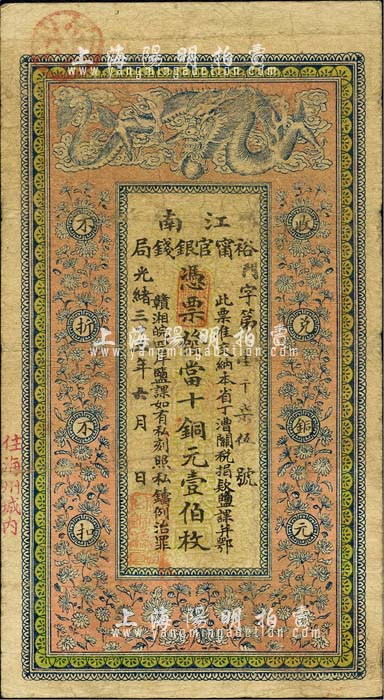 上海陽明拍賣
www.yangmingauction.com
江南
裕甯官銀錢局
收兌銅元
不折不扣
字第
號
此票准完納本省丁漕關稅捐款鹽課其鄂
憑票發當十銅元壹佰枚
贛湘皖四岸鹽課如有私刻照私鑄例治罪
光緒三
年六月日
住海州城内
上海陽明拍賣
www.yangmingauction.com
上海陽明拍賣
www.yangmingauction.com